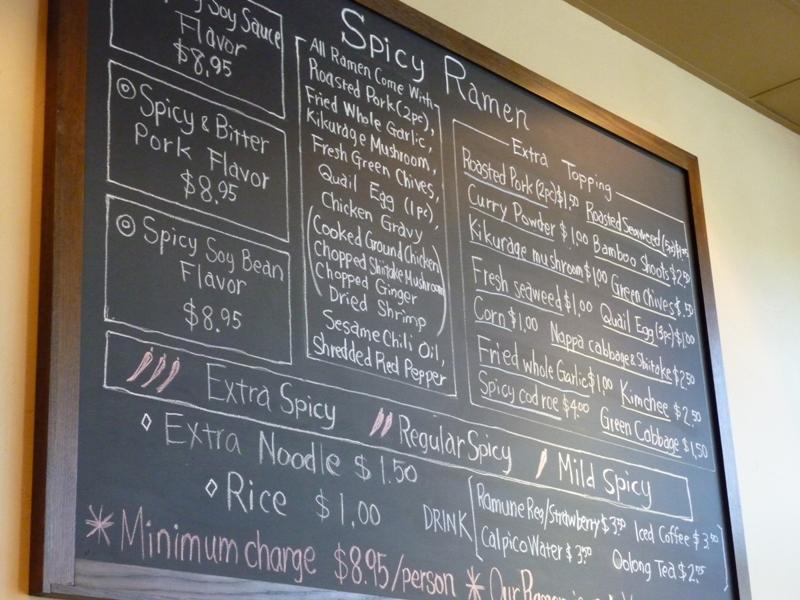 Spicy Ramen
Soy Sauce
Flavor
$8.95
Spicy & Bitter
Pork Flavor
$8.95
Spicy Soy Bean
Flavor
$8.95
All Ramen Come With
Roasted Pork (2pc),
Fried Whole Garlic,
Kikurage Mushroom,
Fresh Green Chives,
Quail Egg (1pc),
Chicken Gravy
(Cooked Ground Chicken
Chopped Shiitake Mushroom
Chopped Ginger
Dried Shrimp)
Sesame Chili Oil,
Shredded Red Pepper
Extra Topping
Roasted Pork (2pc) $1.50 Roasted Seaweed
Curry Powder $1.00 Bamboo Shoots $2.50
Kikurage mushroom $1.00 Green Chives $.50
Fresh seaweed $1.00 Quail Egg (3pc) $1.00
Corn $1.00 Nappa cabbage & Shiitake $2.50
Fried whole Garlic $1.00 Kimchee $2.50
Spicy cod roe $4.00 Green Cabbage $1.50
Extra Spicy Regular Spicy Mild Spicy
◊ Extra Noodle $1.50
◊ Rice $1.00
DRINK
Ramune Reg/Strawberry $3.50 Iced Coffee $3.50
Calpico Water $3.50 Oolong Tea
* Minimum charge $8.95/person * Our Ramen